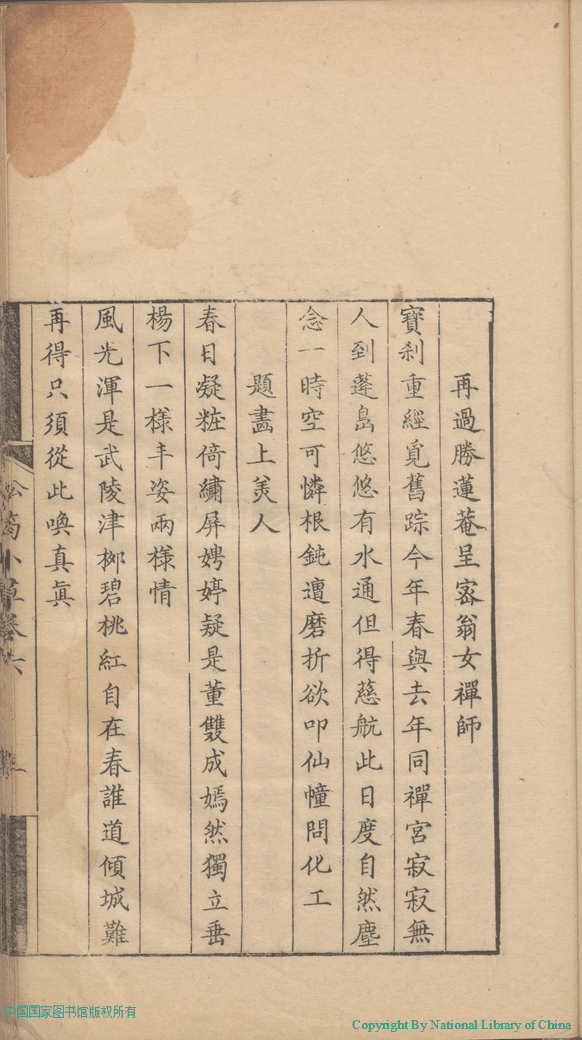 再過勝蓮菴呈宻翁女禪師
寶刹重經覓舊踪今年春與去年同禪宮寂寂無
人到蓬島悠悠有水通但得慈航此日度自然塵
念一時空可憐根鈍遭磨折欲叩仙幢問化工
題畵上美人
春日凝粧倚繡屏娉婷疑是董雙成嫣然獨立垂
楊下一樣丰姿兩樣情
風光渾是武陵津栁碧桃紅自在春誰道傾城難
再得只須從此喚真眞
小草卷六
中国国家图书馆版权所有
Copyright By National Library of China